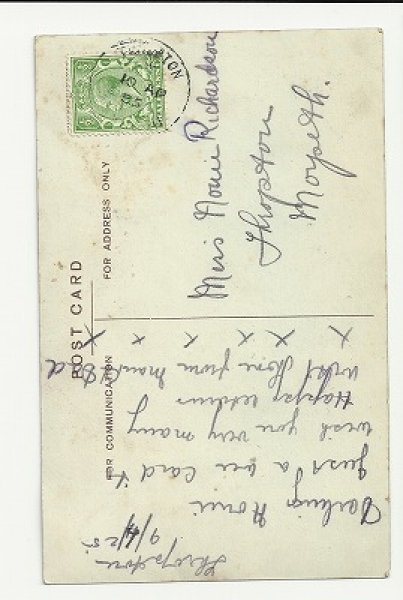 POST CARD
FOR ADDRESS ONLY
10 AP
25
Miss Nonie Richardson
Thropton
Morpeth.
FOR COMMUNICATION
Thropton
9/4/25
Darling Nonie
Just a wee card to
wish you very many
Happy returns
with love from & Dad
x x x x x x